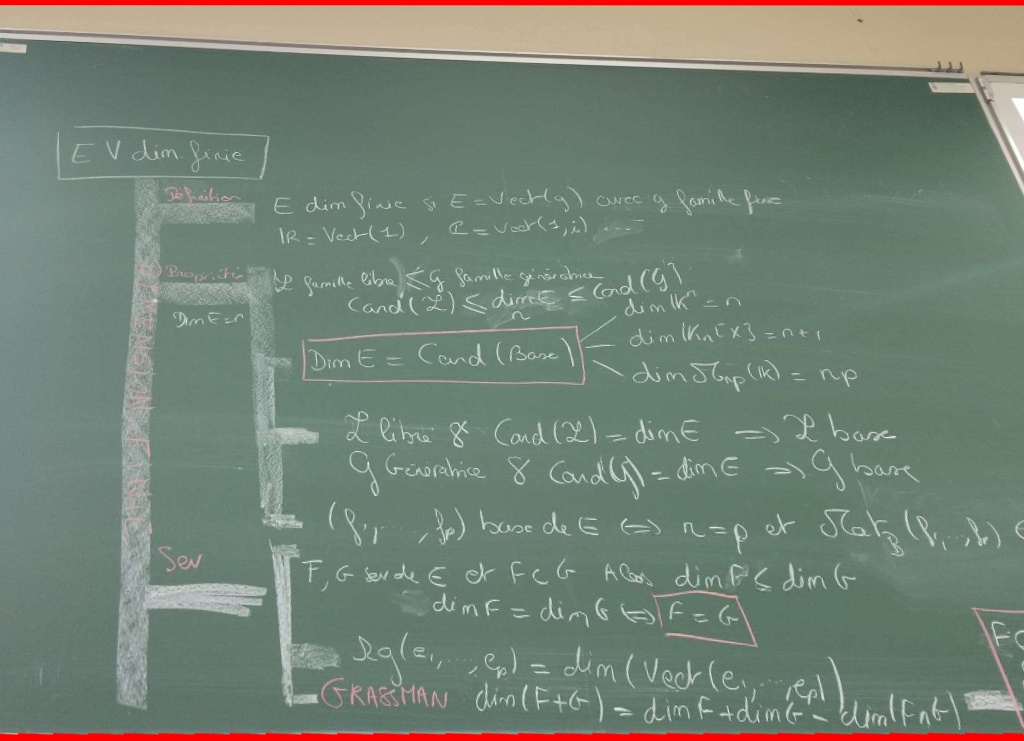 E V dim finie
Définition
E dim finie si E = Vect(G) avec G famille finie
ℝ = Vect(1) , ℂ = Vect(1,i) ...
Propriétés
Dim E = n
L famille libre ≤ G famille génératrice
Card(L) ≤ dim E ≤ Card(G)
n
Dim E = Card (Base)
dim 𝕂ⁿ = n
dim 𝕂n[X] = n+1
dim 𝓜np(𝕂) = np
L libre & Card(L) = dim E ⇒ L base
G Génératrice & Card(G) = dim E ⇒ G base
(f₁,...,fp) base de E ⇔ n = p et Mat_B (f₁,...,fp) ∈
DIMENSION FINIE
Sev
F, G sev de E et F ⊂ G Alors dim F ≤ dim G
dim F = dim G ⇔ F = G
Rg(e₁,...,ep) = dim(Vect(e₁,...,ep))
GRASSMAN dim(F+G) = dim F + dim G - dim(F∩G)